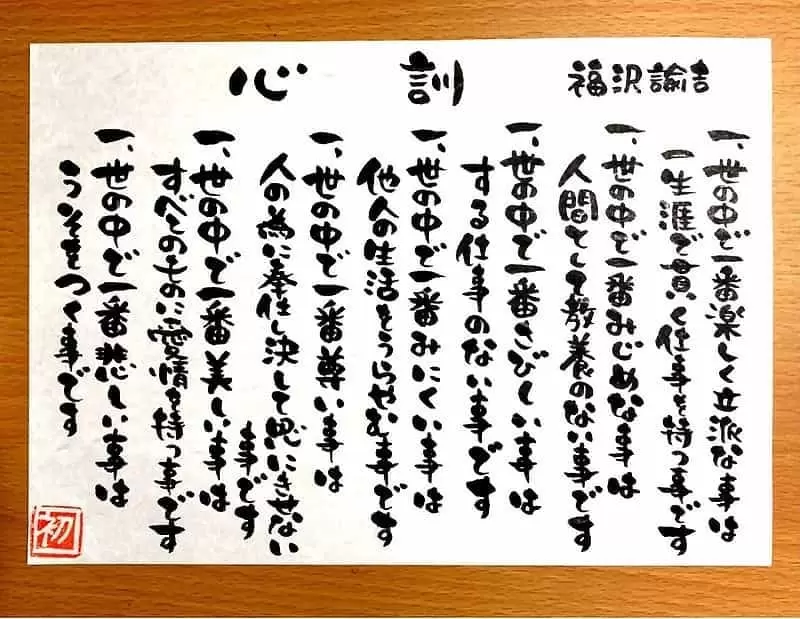 心訓 福沢諭吉
一、世の中で一番楽しく立派な事は
一生涯で貫く仕事を持つ事です
一、世の中で一番みじめな事は
人間として教養のない事です
一、世の中で一番さびしい事は
する仕事のない事です
一、世の中で一番みにくい事は
他人の生活をうらやむ事です
一、世の中で一番尊い事は
人の為に奉仕し決して恩にきせない
事です
一、世の中で一番美しい事は
すべてのものに愛情を持つ事です
一、世の中で一番悲しい事は
うそをつく事です
初